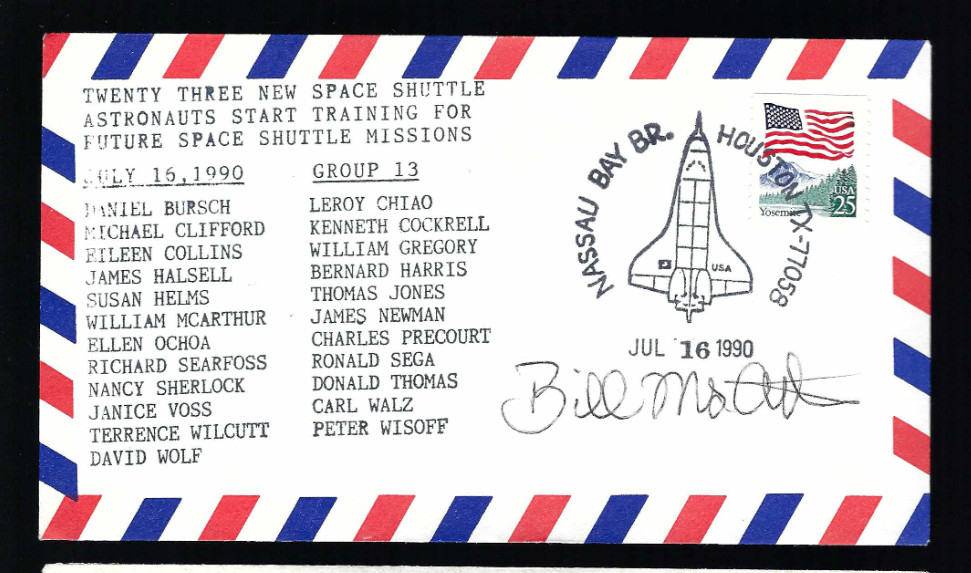 TWENTY THREE NEW SPACE SHUTTLE
ASTRONAUTS START TRAINING FOR
FUTURE SPACE SHUTTLE MISSIONS
JULY 16,1990 GROUP 13
DANIEL BURSCH
MICHAEL CLIFFORD
EILEEN COLLINS
JAMES HALSELL
SUSAN HELMS
WILLIAM MCARTHUR
ELLEN OCHOA
RICHARD SEARFOSS
NANCY SHERLOCK
JANICE VOSS
TERRENCE WILCUTT
DAVID WOLF
LEROY CHIAO
KENNETH COCKRELL
WILLIAM GREGORY
BERNARD HARRIS
THOMAS JONES
JAMES NEWMAN
CHARLES PRECOURT
RONALD SEGA
DONALD THOMAS
CARL WALZ
PETER WISOFF
NASSAU BAY BR. HOUSTON TX-77058
USA
JUL 16 1990
Yosemite
USA
25
Bill McArthur